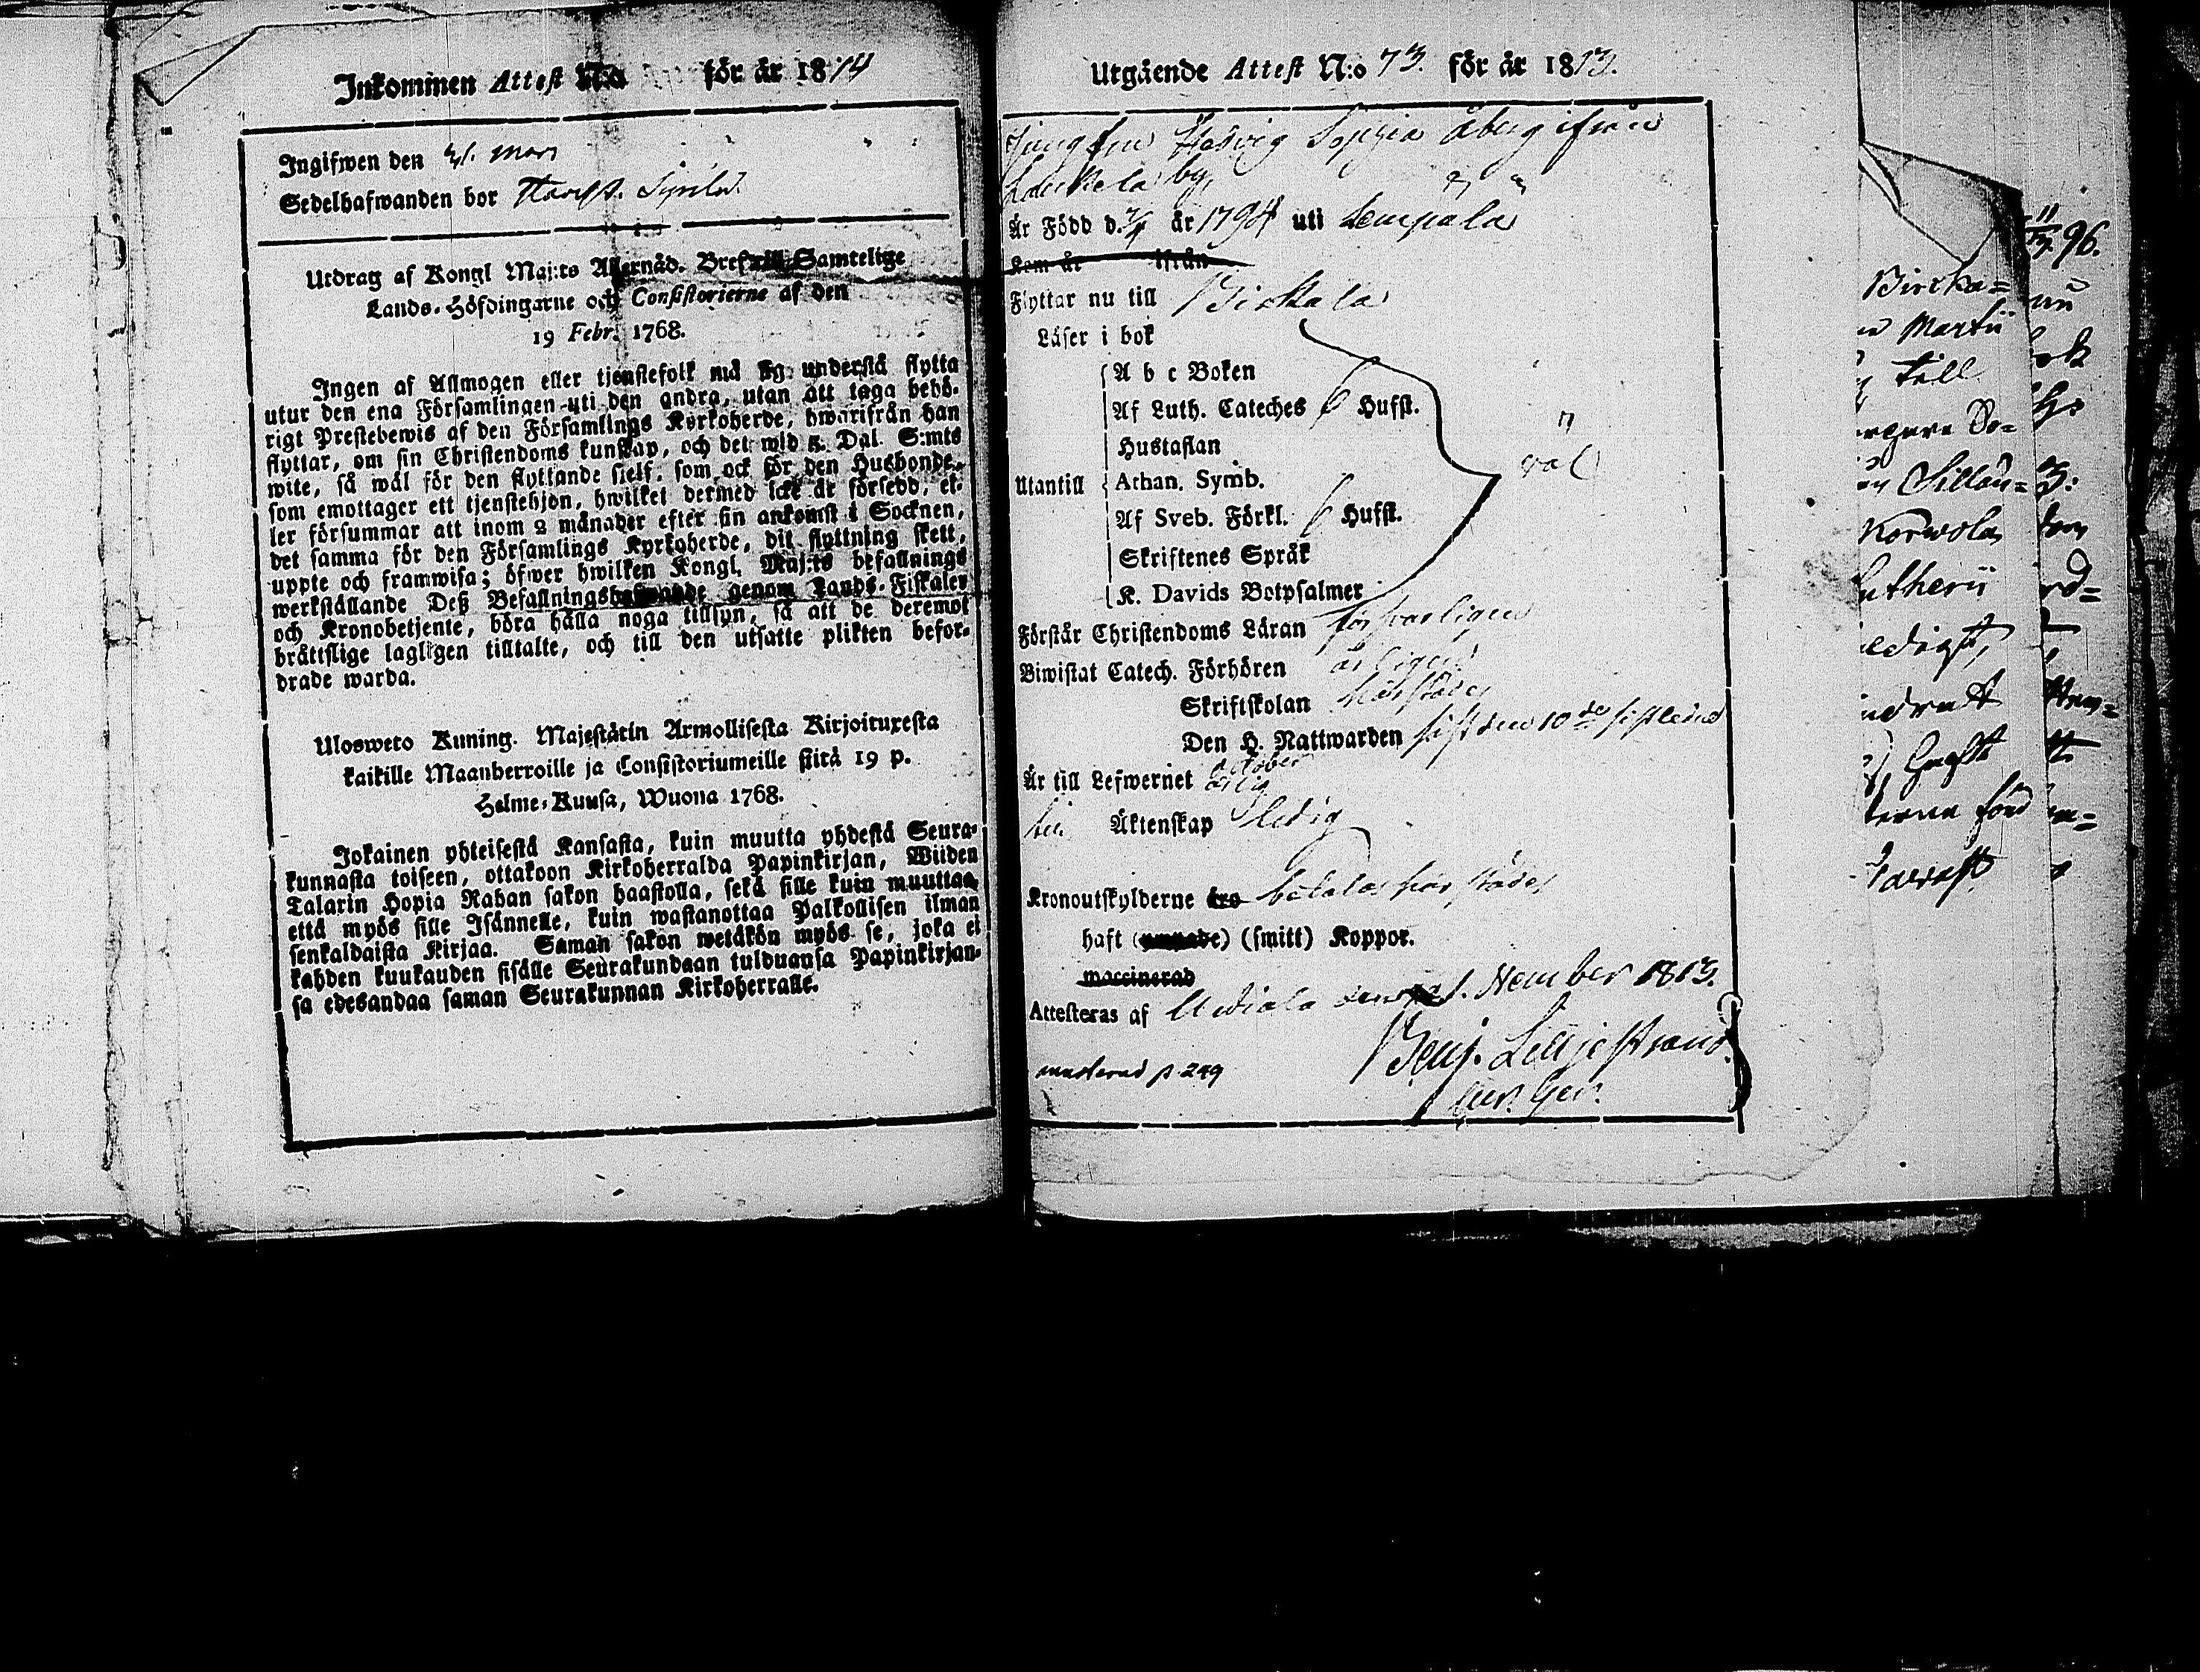 Inkommen Attest N:o för år 1814
Ingifwen den 31. Mars
Sedelhafwanden bor
Utdrag af Kongl Maj:ts Allernåd. Bref till Samtelige
Lands-Höfdingarne och Consistorierne af den
19 Febr. 1768.
Ingen af Allmogen eller tjenstefolk må sig understå flytta
utur den ena Församlingen uti den andra, utan att taga behö-
rigt Prestebewis af den Församlings Kyrkoherde, hwarifrån han
flyttar, om sin Christendoms kunskap, och det wid 5. Dal. S:mts
wite, så wäl för den flyttande sielf, som ock för den Husbonde,
som emottager ett tjenstehjon, hwilket dermed icke är försedd, el-
ler försummar att inom 2 månader efter sin ankomst i Socknen,
det samma för den Församlings Kyrkoherde, dit flyttning skett,
uppte och framwisa; öfwer hwilken Kongl. Maj:ts befallnings
werkställande Deß Befallningshafwande genom Lands-Fiskaler
och Kronobetjente, böra hålla noga tillsyn, så att de deremot
bråttslige lagligen tilltalte, och till den utsatte plikten befor-
drade warda.
Ulosweto Kuning. Majestätin Armollisesta Kirjoituxesta
kaikille Maanherroille ja Consistoriumeille siitä 19 p.
Helme-Kuusa, Wuona 1768.
Jokainen yhteisestä Kansasta, kuin muutta yhdestä Seura-
kunnasta toiseen, ottakoon Kirkoherralda Papinkirjan, Wiiden
Talarin Hopia Rahan sakon haastolla, sekä sille kuin muuttaa,
että myös sille Isännelle, kuin wastanottaa Palkollisen ilman
senkaldaista Kirjaa. Saman sakon wetäkön myös se, joka ei
kahden kuukauden sisälle Seurakundaan tulduansa Papinkirjan-
sa edesandaa saman Seurakunnan Kirkoherralle.
Utgående Attest N:o 73. för år 1813.
Jungfru Hedvig Sophia Åberg ifrån
Laukela by,
Är Född d. år 1794 uti Lempälä
Kom år ifrån
Flyttar nu till Birkala
Läser i bok
A b c Boken
Af Luth. Cateches 6 Hufst.
Hustaflan
Utantill Athan. Symb. väl
Af Sveb. Förkl. 6 Hufst.
Skriftenes Språk
K. Davids Botpsalmer
Förstår Christendoms Läran försvarligen
Biwistat Catech. Förhören årligen
Skriftskolan härstädes
Den H. Nattwarden sist den 10de sistledne
october
Är till Lefwernet ärlig
Äktenskap ledig
Kronoutskylderne betalas härstädes
haft (smitt) Koppor.
waccinerad
Attesteras af Wesilax 1. November 1813.
Benj. Lilljestrand.
noterad p 249
11/13. 96.
Birka=
Martii
till
Korwola
Lutherii
ledigt,